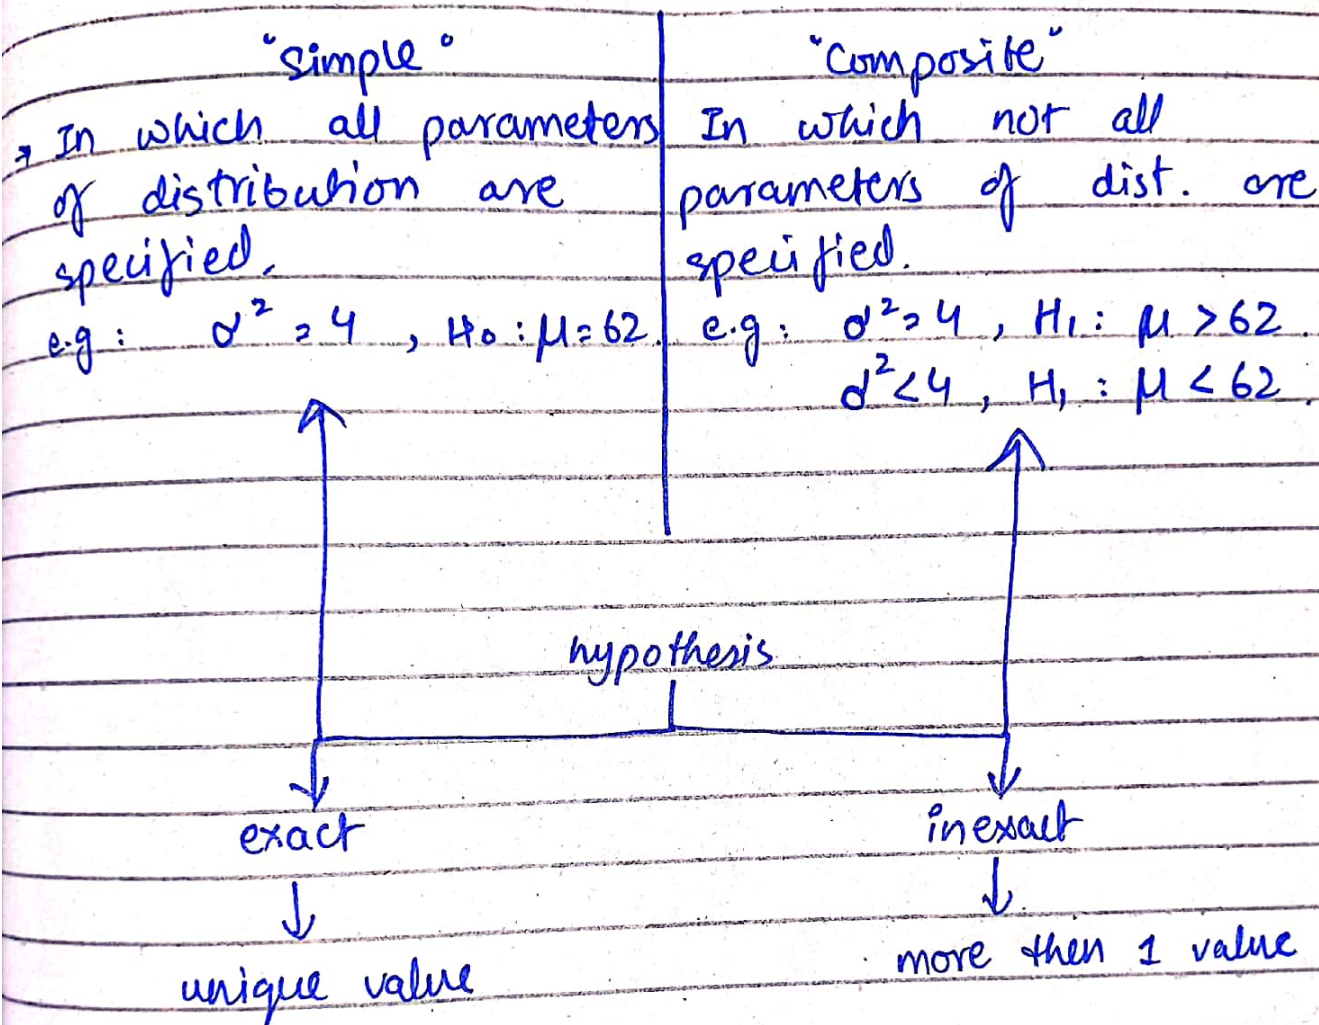 "Simple"
→ In which all parameters
of distribution are
specified.
e.g : σ² = 4 , H₀ : μ = 62.
"Composite"
In which not all
parameters of dist. are
specified.
e.g : σ² = 4 , H₁ : μ > 62.
σ² < 4 , H₁ : μ < 62.
hypothesis
exact
unique value
inexact
more then 1 value